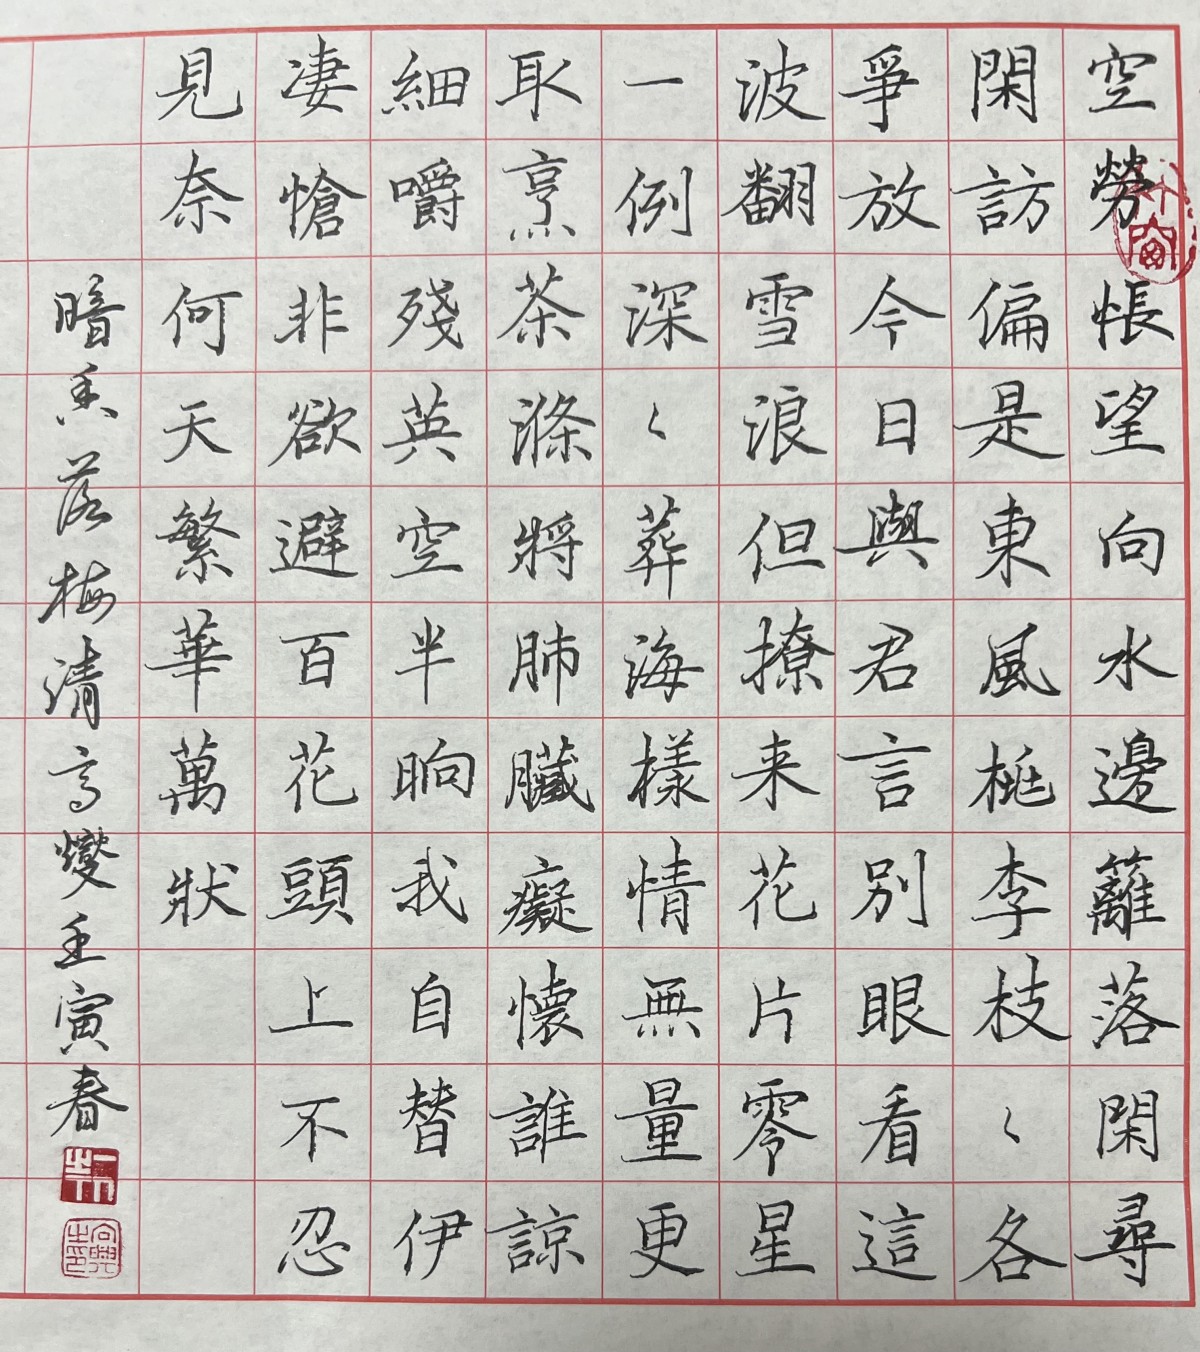 空勞悵望向水邊籬落閑尋
閑訪偏是東風桃李枝〻各
爭放今日與君言別眼看這
波翻雪浪但撩来花片零星
一例深〻葬海樣情無量更
取烹茶滌將肺臟癡懷誰諒
細嚼殘英空半晌我自替伊
凄愴非欲避百花頭上不忍
見奈何天繁華萬狀
暗香落梅清高燮壬寅春